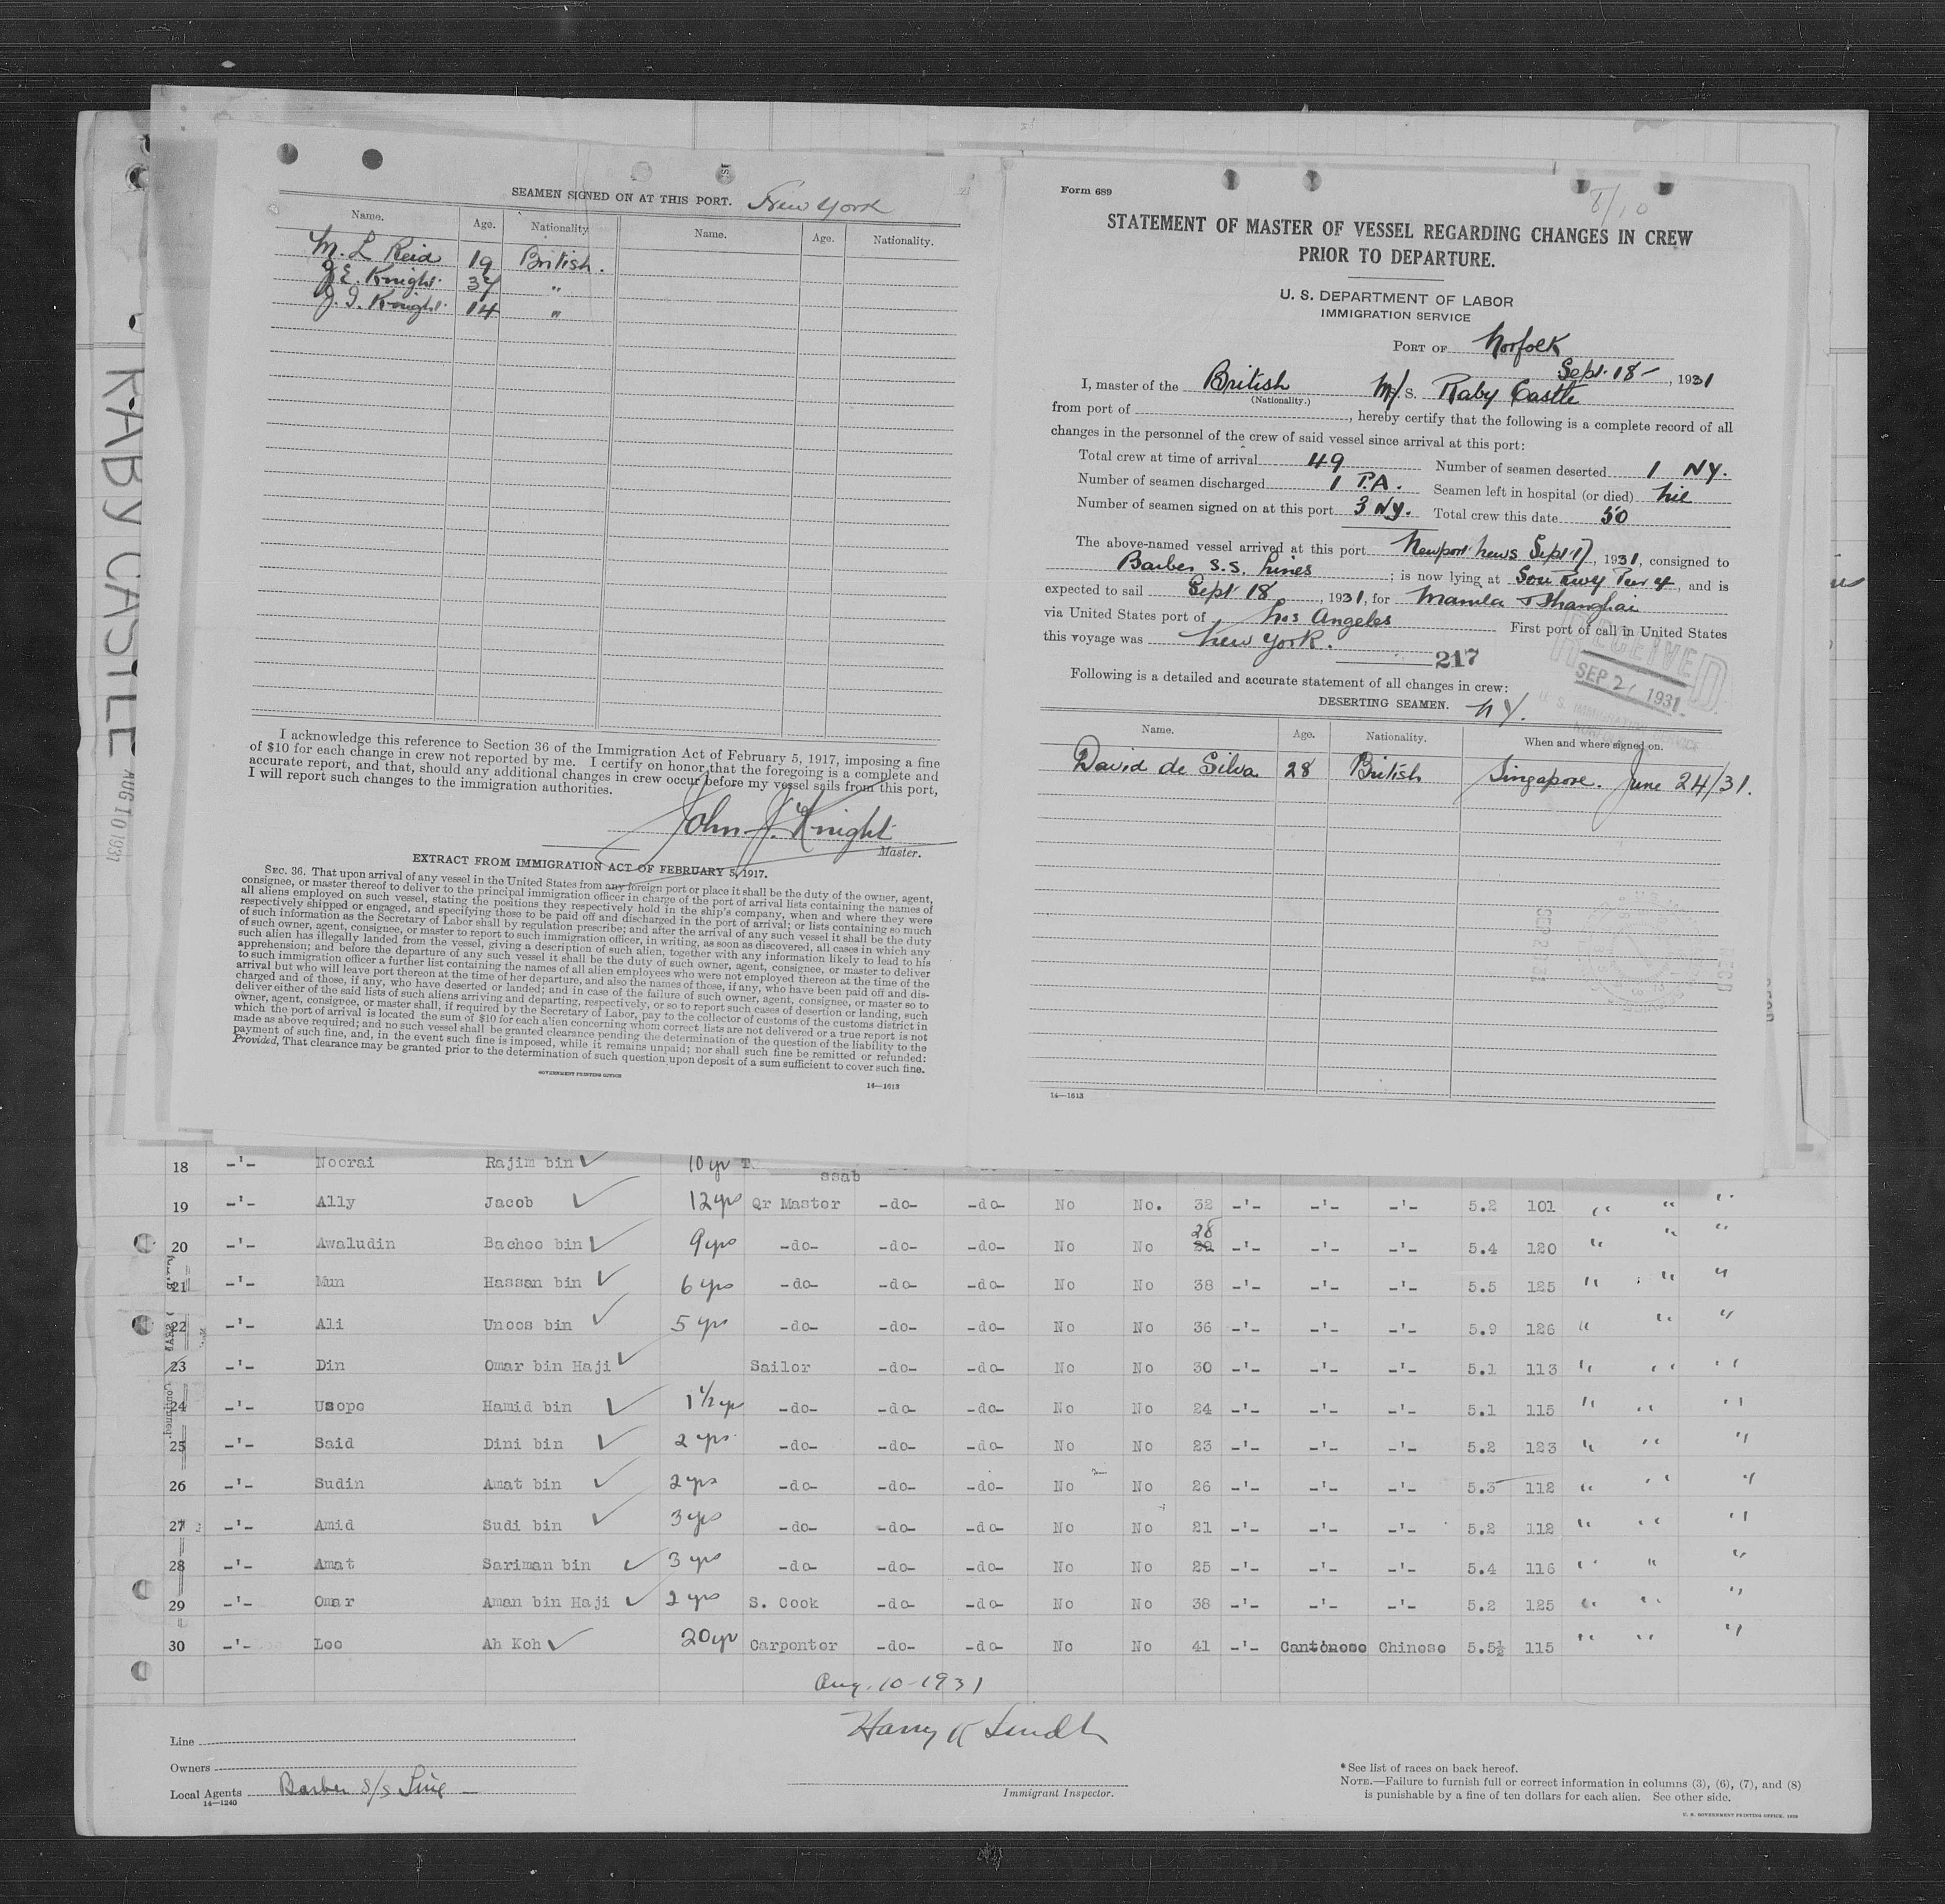 RABY CASTLE
AUG 10 1931
SEAMEN SIGNED ON AT THIS PORT. New York
Name. Age. Nationality Name. Age. Nationality.
M. L Reid 19 British.
J E. Knight. 37 "
J. I. Knight. 14 "
I acknowledge this reference to Section 36 of the Immigration Act of February 5, 1917, imposing a fine
of $10 for each change in crew not reported by me. I certify on honor that the foregoing is a complete and
accurate report, and that, should any additional changes in crew occur before my vessel sails from this port,
I will report such changes to the immigration authorities.
John J. Knight
Master.
EXTRACT FROM IMMIGRATION ACT OF FEBRUARY 5, 1917.
SEC. 36. That upon arrival of any vessel in the United States from any foreign port or place it shall be the duty of the owner, agent,
consignee, or master thereof to deliver to the principal immigration officer in charge of the port of arrival lists containing the names of
all aliens employed on such vessel, stating the positions they respectively hold in the ship's company, when and where they were
respectively shipped or engaged, and specifying those to be paid off and discharged in the port of arrival; or lists containing so much
of such information as the Secretary of Labor shall by regulation prescribe; and after the arrival of any such vessel it shall be the duty
of such owner, agent, consignee, or master to report to such immigration officer, in writing, as soon as discovered, all cases in which any
such alien has illegally landed from the vessel, giving a description of such alien, together with any information likely to lead to his
apprehension; and before the departure of any such vessel it shall be the duty of such owner, agent, consignee, or master to deliver
to such immigration officer a further list containing the names of all alien employees who were not employed thereon at the time of the
arrival but who will leave port thereon at the time of her departure, and also the names of those, if any, who have been paid off and dis-
charged and of those, if any, who have deserted or landed; and in case of the failure of such owner, agent, consignee, or master so to
deliver either of the said lists of such aliens arriving and departing, respectively, or so to report such cases of desertion or landing, such
owner, agent, consignee, or master shall, if required by the Secretary of Labor, pay to the collector of customs of the customs district in
which the port of arrival is located the sum of $10 for each alien concerning whom correct lists are not delivered or a true report is not
made as above required; and no such vessel shall be granted clearance pending the determination of the question of the liability to the
payment of such fine, and, in the event such fine is imposed, while it remains unpaid; nor shall such fine be remitted or refunded:
Provided, That clearance may be granted prior to the determination of such question upon deposit of a sum sufficient to cover such fine.
GOVERNMENT PRINTING OFFICE
14—1613
Form 689
8/10
STATEMENT OF MASTER OF VESSEL REGARDING CHANGES IN CREW
PRIOR TO DEPARTURE.
U. S. DEPARTMENT OF LABOR
IMMIGRATION SERVICE
PORT OF Norfolk
Sept. 18 -, 1931
I, master of the British M/S. Raby Castle
(Nationality.)
from port of , hereby certify that the following is a complete record of all
changes in the personnel of the crew of said vessel since arrival at this port:
Total crew at time of arrival 49 Number of seamen deserted 1 NY.
Number of seamen discharged 1 P.A. Seamen left in hospital (or died) nil
Number of seamen signed on at this port 3 NY. Total crew this date 50
The above-named vessel arrived at this port Newport News Sept 17, 1931, consigned to
Barber S.S. Lines ; is now lying at Sou Rwy Pier 4, and is
expected to sail Sept 18, 1931, for Manila & Shanghai
via United States port of Los Angeles First port of call in United States
this voyage was New York.
217
RECEIVED
SEP 21 1931
U. S. IMMIGRATION SERVICE
NORFOLK
Following is a detailed and accurate statement of all changes in crew:
DESERTING SEAMEN. NY.
Name. Age. Nationality. When and where signed on.
David de Silva 28 British Singapore. June 24/31.
REC'D
14—1613
18 -'- Noorai Rajim bin ✓ 10 yr
ssab
19 -'- Ally Jacob ✓ 12 yrs Qr Master -do- -do- No No. 32 -'- -'- -'- 5.2 101 " " "
20 -'- Awaludin Bachoo bin ✓ 9 yrs -do- -do- -do- No No 28 -'- -'- -'- 5.4 120 " " "
21 -'- Mun Hassan bin ✓ 6 yrs -do- -do- -do- No No 38 -'- -'- -'- 5.5 125 " " "
22 -'- Ali Unoos bin ✓ 5 yrs -do- -do- -do- No No 36 -'- -'- -'- 5.9 126 " " "
23 -'- Din Omar bin Haji ✓ Sailor -do- -do- No No 30 -'- -'- -'- 5.1 113 " " "
24 -'- Usopo Hamid bin ✓ 1 1/2 yr -do- -do- -do- No No 24 -'- -'- -'- 5.1 115 " " "
25 -'- Said Dini bin ✓ 2 yrs -do- -do- -do- No No 23 -'- -'- -'- 5.2 123 " " "
26 -'- Sudin Amat bin ✓ 2 yrs -do- -do- -do- No No 26 -'- -'- -'- 5.3 112 " " "
27 -'- Amid Sudi bin ✓ 3 yrs -do- -do- -do- No No 21 -'- -'- -'- 5.2 112 " " "
28 -'- Amat Sariman bin ✓ 3 yrs -do- -do- -do- No No 25 -'- -'- -'- 5.4 116 " " "
29 -'- Omar Aman bin Haji ✓ 2 yrs S. Cook -do- -do- No No 38 -'- -'- -'- 5.2 125 " " "
30 -'- Leo Ah Koh ✓ 20 yr Carpenter -do- -do- No No 41 -'- Cantonese Chinese 5.5½ 115 " " "
Aug. 10-1931
Harry K Lundh
Line
Owners
Local Agents Barber S/S Line
14—1240
Immigrant Inspector.
* See list of races on back hereof.
NOTE.—Failure to furnish full or correct information in columns (3), (6), (7), and (8)
is punishable by a fine of ten dollars for each alien. See other side.
U. S. GOVERNMENT PRINTING OFFICE, 1929